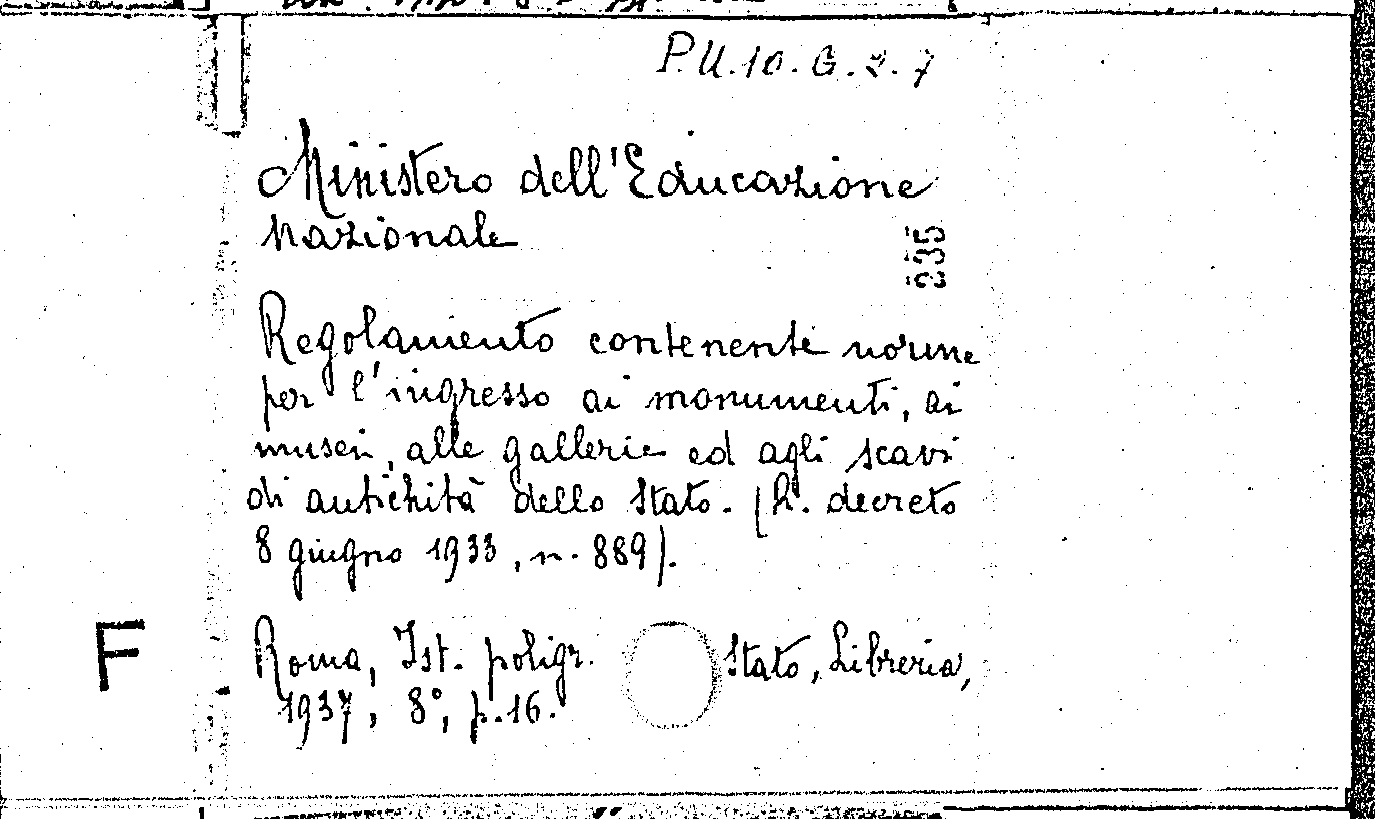 P.U.10.G.2.7
Ministero dell'Educazione
Nazionale
235
Regolamento contenente norme
per l'ingresso ai monumenti, ai
musei, alle gallerie ed agli scavi
di antichità dello Stato. (R. decreto
8 giugno 1933, n. 889).
F
Roma, Ist. poligr. Stato, Libreria,
1937, 8°, p.16.